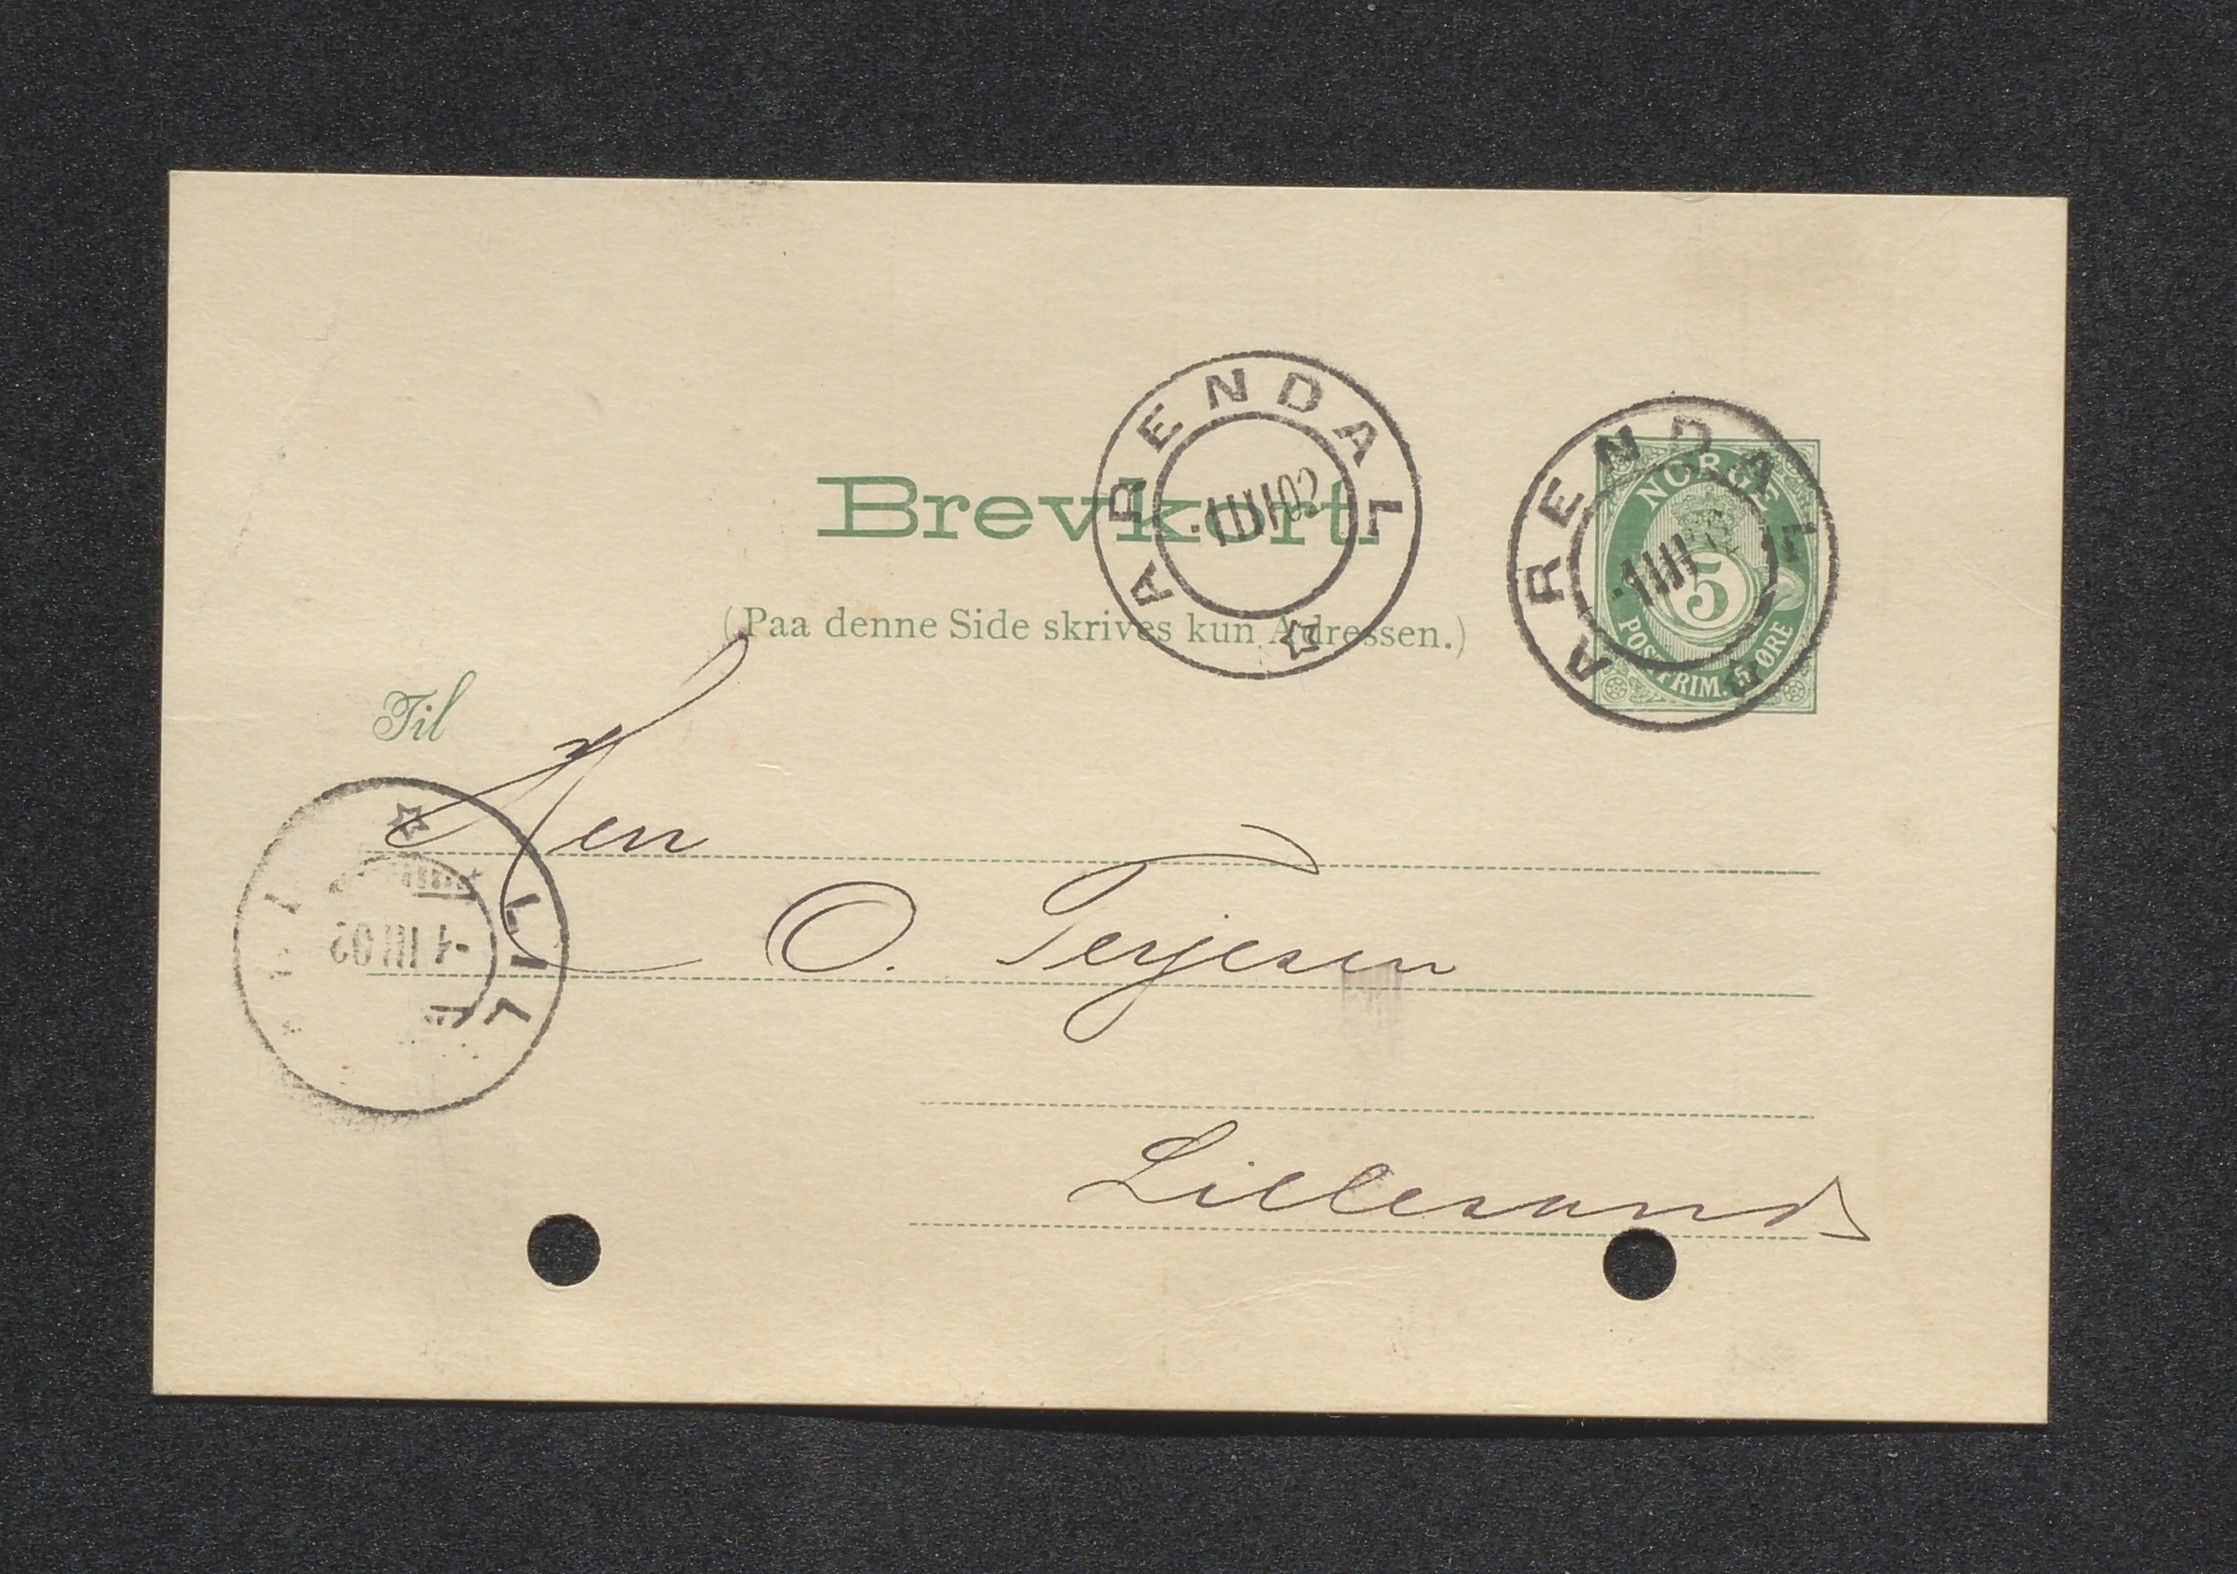 Brevkort.
(Paa denne Side skrives kun Adressen.)
ARENDAL
-1 III 02
ARENDAL
-1 III 02
NORGE
5
POSTFRIM. 5 ØRE
Til
Herr
O. Terjesen
Lillesand
LILL
-1 III 02